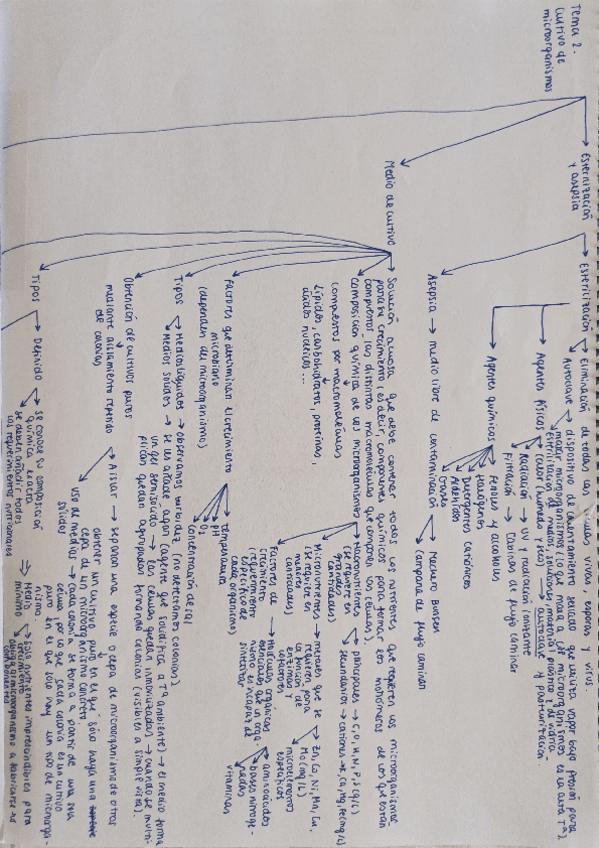 Tema 2.
Cultivo de
microorganismos
Esterilización
y asepsia
Esterilización → Eliminación de todas las células vivas, esporas y virus.
Autoclave → dispositivo de calentamiento sellado que utiliza vapor bajo presión para
matar microorganismos (lo que mata a los microorganismos es la alta Tª).
Esterilización de medios
Agentes físicos
Calor (húmedo y seco) → autoclave y pasteurización
Radiación → UV y radiación ionizante
Filtración → Cabinas de flujo laminar
Agentes químicos
Fenoles y alcoholes
Halógenos
Detergentes catiónicos
Aldehídos
Gases
Asepsia → medio libre de contaminación
Mechero Bunsen
Campana de flujo laminar
Medio de cultivo
Solución acuosa que debe contener todos los nutrientes que requieren los microorganismos
para su crecimiento, es decir, componentes químicos para formar los monómeros de los que están
compuestos las distintas macromoléculas que componen las células.
Composición química de los microorganismos
Compuestos por macromoléculas
Lípidos, carbohidratos, proteínas,
ácidos nucleicos...
Macronutrientes
(se requiere en
grandes
cantidades)
principales → C, O, H, N, P, S (g/L)
secundarios → cationes → K, Ca, Mg, Fe (mg/L)
Micronutrientes → metales que se
(se requiere en
pequeñas
cantidades)
requieren para
la función de
enzimas y
cofactores
Zn, Co, Ni, Mn, Cu,
Mo (mg/L)
microelementos
específicos
Factores de
crecimiento
(requerimiento
específico de
cada organismo)
Moléculas orgánicas
esenciales que un orga-
nismo es incapaz de
sintetizar
aminoácidos
bases nitroge-
nadas
vitaminas
Factores que determinan el crecimiento
microbiano
(dependen del microorganismo)
temperatura
pH
O₂
Concentración de sal
Tipos
Medios líquidos → observamos turbidez (no detectamos colonias)
Medios sólidos → se les añade agar (agente que solidifica a Tª ambiente) → el medio forma
un gel semisólido → las células quedan inmovilizadas → cuando se multi-
plican quedan agrupadas formando colonias (visibles a simple vista).
Obtención de cultivos puros
mediante aislamiento repetido
de colonias
Aislar → separar una especie o cepa de microorganismo de otras
obtener un cultivo puro en el que sólo haya una
cepa de un microorganismo concreto.
Uso de medios
sólidos
→ cada colonia se forma a partir de una sola
célula, por lo que cada colonia es un cultivo
puro en el que solo hay un tipo de microorga-
nismo.
Tipos
Definido
se conoce su composición
química exacta
se deben añadir todos
los requerimientos nutricionales
Medio
mínimo
Solo nutrientes imprescindibles para
crecimiento
obliga al microorganismo a fabricarse